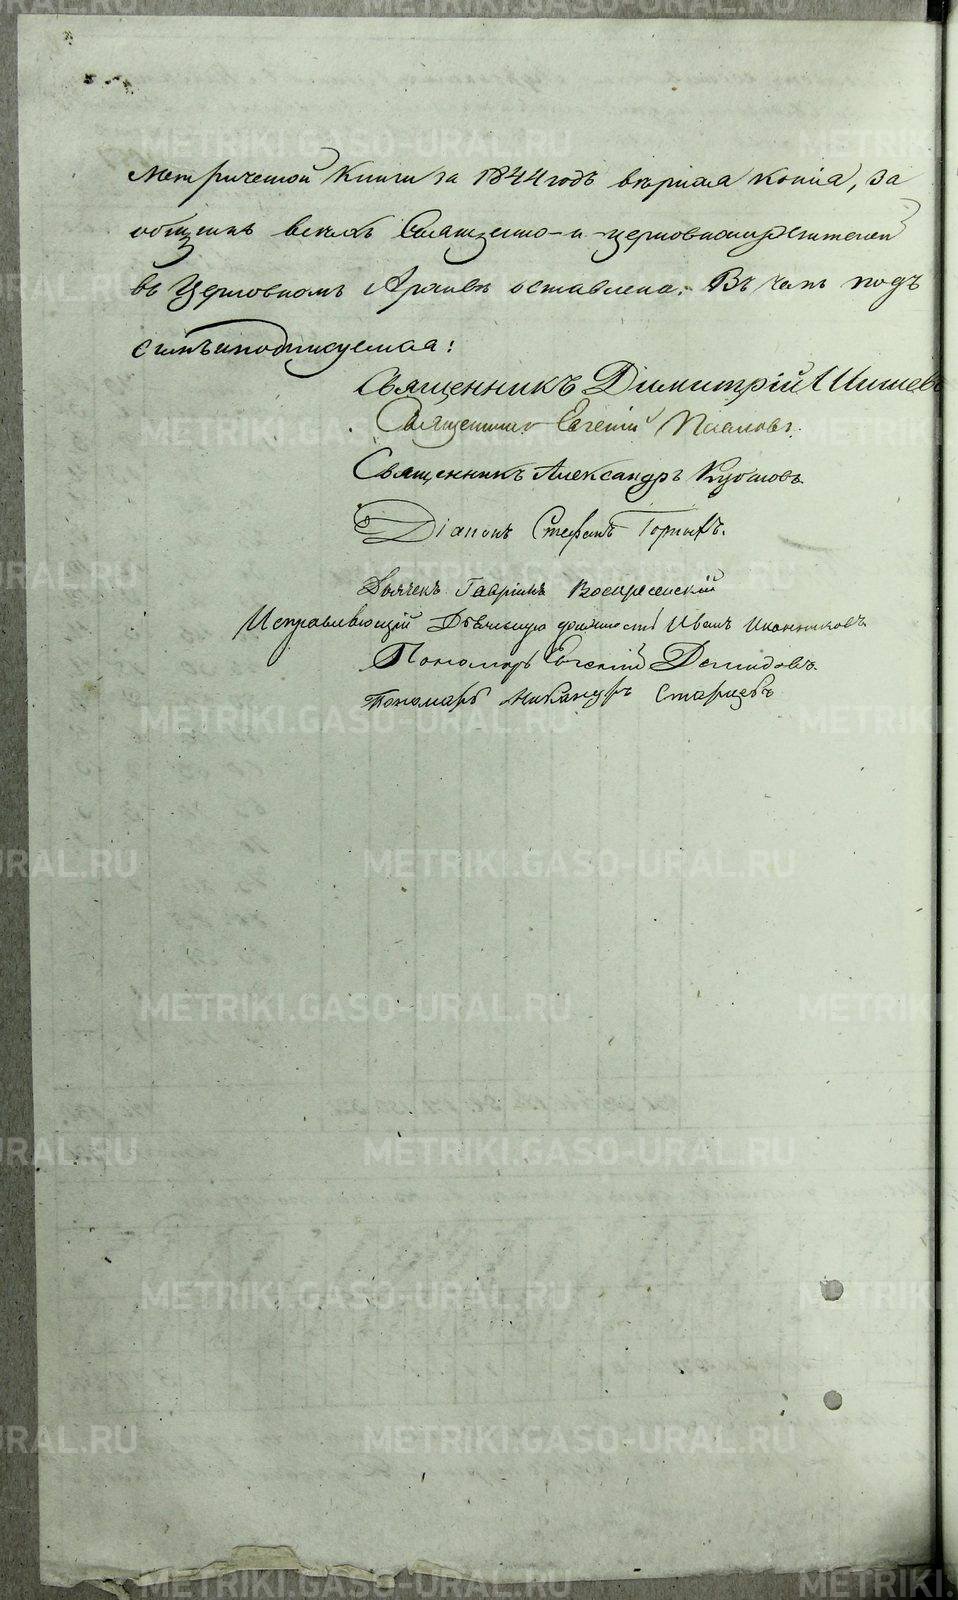 Метрической книги за 1844 годъ вѣрная копія, за
общимъ всѣхъ Священно- и -церковнослужителей
въ Церковномъ Архивѣ оставлена. Въ чемъ подъ
симъ и подписуемся:
Священникъ Димитрій Шишевъ
Священникъ Евгеній Павловъ.
Священникъ Александръ
Діаконъ Стефанъ Горныхъ.
Дьячекъ Гавріилъ Воскресенскій
Исправляющій Дьячьскую должность Иванъ Иконниковъ
Пономарь Евгеній Демидовъ.
Пономарь Никаноръ Старцевъ
METRIKI.GASO-URAL.RU